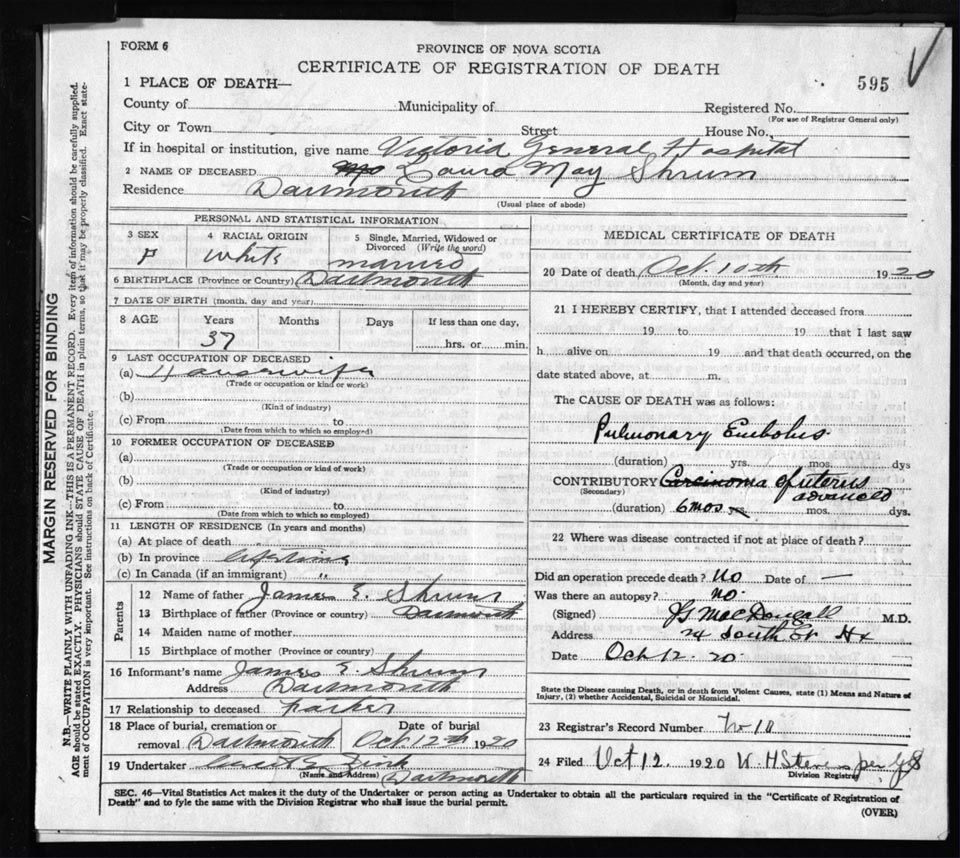 FORM 6
PROVINCE OF NOVA SCOTIA
CERTIFICATE OF REGISTRATION OF DEATH
1 PLACE OF DEATH—
595
County of
Municipality of
Registered No.
(For use of Registrar General only)
City or Town
Street
House No.
If in hospital or institution, give name Victoria General Hospital
2 NAME OF DECEASED Laura May Shrum
Residence Dartmouth
(Usual place of abode)
MARGIN RESERVED FOR BINDING
N.B.—WRITE PLAINLY WITH UNFADING INK—THIS IS A PERMANENT RECORD. Every item of information should be carefully supplied.
AGE should be stated EXACTLY. PHYSICIANS should STATE CAUSE OF DEATH in plain terms, so that it may be properly classified. Exact state-
ment of OCCUPATION is very important. See instructions on back of Certificate.
PERSONAL AND STATISTICAL INFORMATION
3 SEX
F
4 RACIAL ORIGIN
White
5 Single, Married, Widowed or
Divorced (Write the word)
married
6 BIRTHPLACE (Province or Country) Dartmouth
7 DATE OF BIRTH (month, day and year)
8 AGE
Years
37
Months
Days
If less than one day,
hrs. or min.
9 LAST OCCUPATION OF DECEASED
(a) Housewife
(Trade or occupation or kind or work)
(b)
(Kind of industry)
(c) From to
(Date from which to which so employed)
10 FORMER OCCUPATION OF DECEASED
(a)
(Trade or occupation or kind of work)
(b)
(Kind of industry)
(c) From to
(Date from which to which so employed)
11 LENGTH OF RESIDENCE (In years and months)
(a) At place of death
(b) In province lifetime
(c) In Canada (if an immigrant) "
Parents
12 Name of father James E. Shrum
13 Birthplace of father (Province or country) Dartmouth
14 Maiden name of mother
15 Birthplace of mother (Province or country)
16 Informant's name James E. Shrum
Address Dartmouth
17 Relationship to deceased
18 Place of burial, cremation or
removal Dartmouth
Date of burial
Oct. 12th 1920
19 Undertaker
(Name and Address) Dartmouth
MEDICAL CERTIFICATE OF DEATH
20 Date of death Oct. 10th 1920
(Month, day and year)
21 I HEREBY CERTIFY, that I attended deceased from
19 to 19 that I last saw
h alive on 19 and that death occurred, on the
date stated above, at m.
The CAUSE OF DEATH was as follows:
Pulmonary Embolus
(duration) yrs. mos. dys
CONTRIBUTORY Carcinoma of uterus
(Secondary) advanced
(duration) 6 mos. mos. dys.
22 Where was disease contracted if not at place of death?
Did an operation precede death? No Date of —
Was there an autopsy? no.
(Signed) J G MacDougall M.D.
Address 24 South St Hx
Date Oct 12. 20
State the Disease causing Death, or in death from Violent Causes, state (1) Means and Nature of
Injury, (2) whether Accidental, Suicidal or Homicidal.
23 Registrar's Record Number
24 Filed Oct 12. 1920 W. H Stevens per
Division Registrar
SEC. 46—Vital Statistics Act makes it the duty of the Undertaker or person acting as Undertaker to obtain all the particulars required in the "Certificate of Registration of
Death" and to fyle the same with the Division Registrar who shall issue the burial permit.
(OVER)